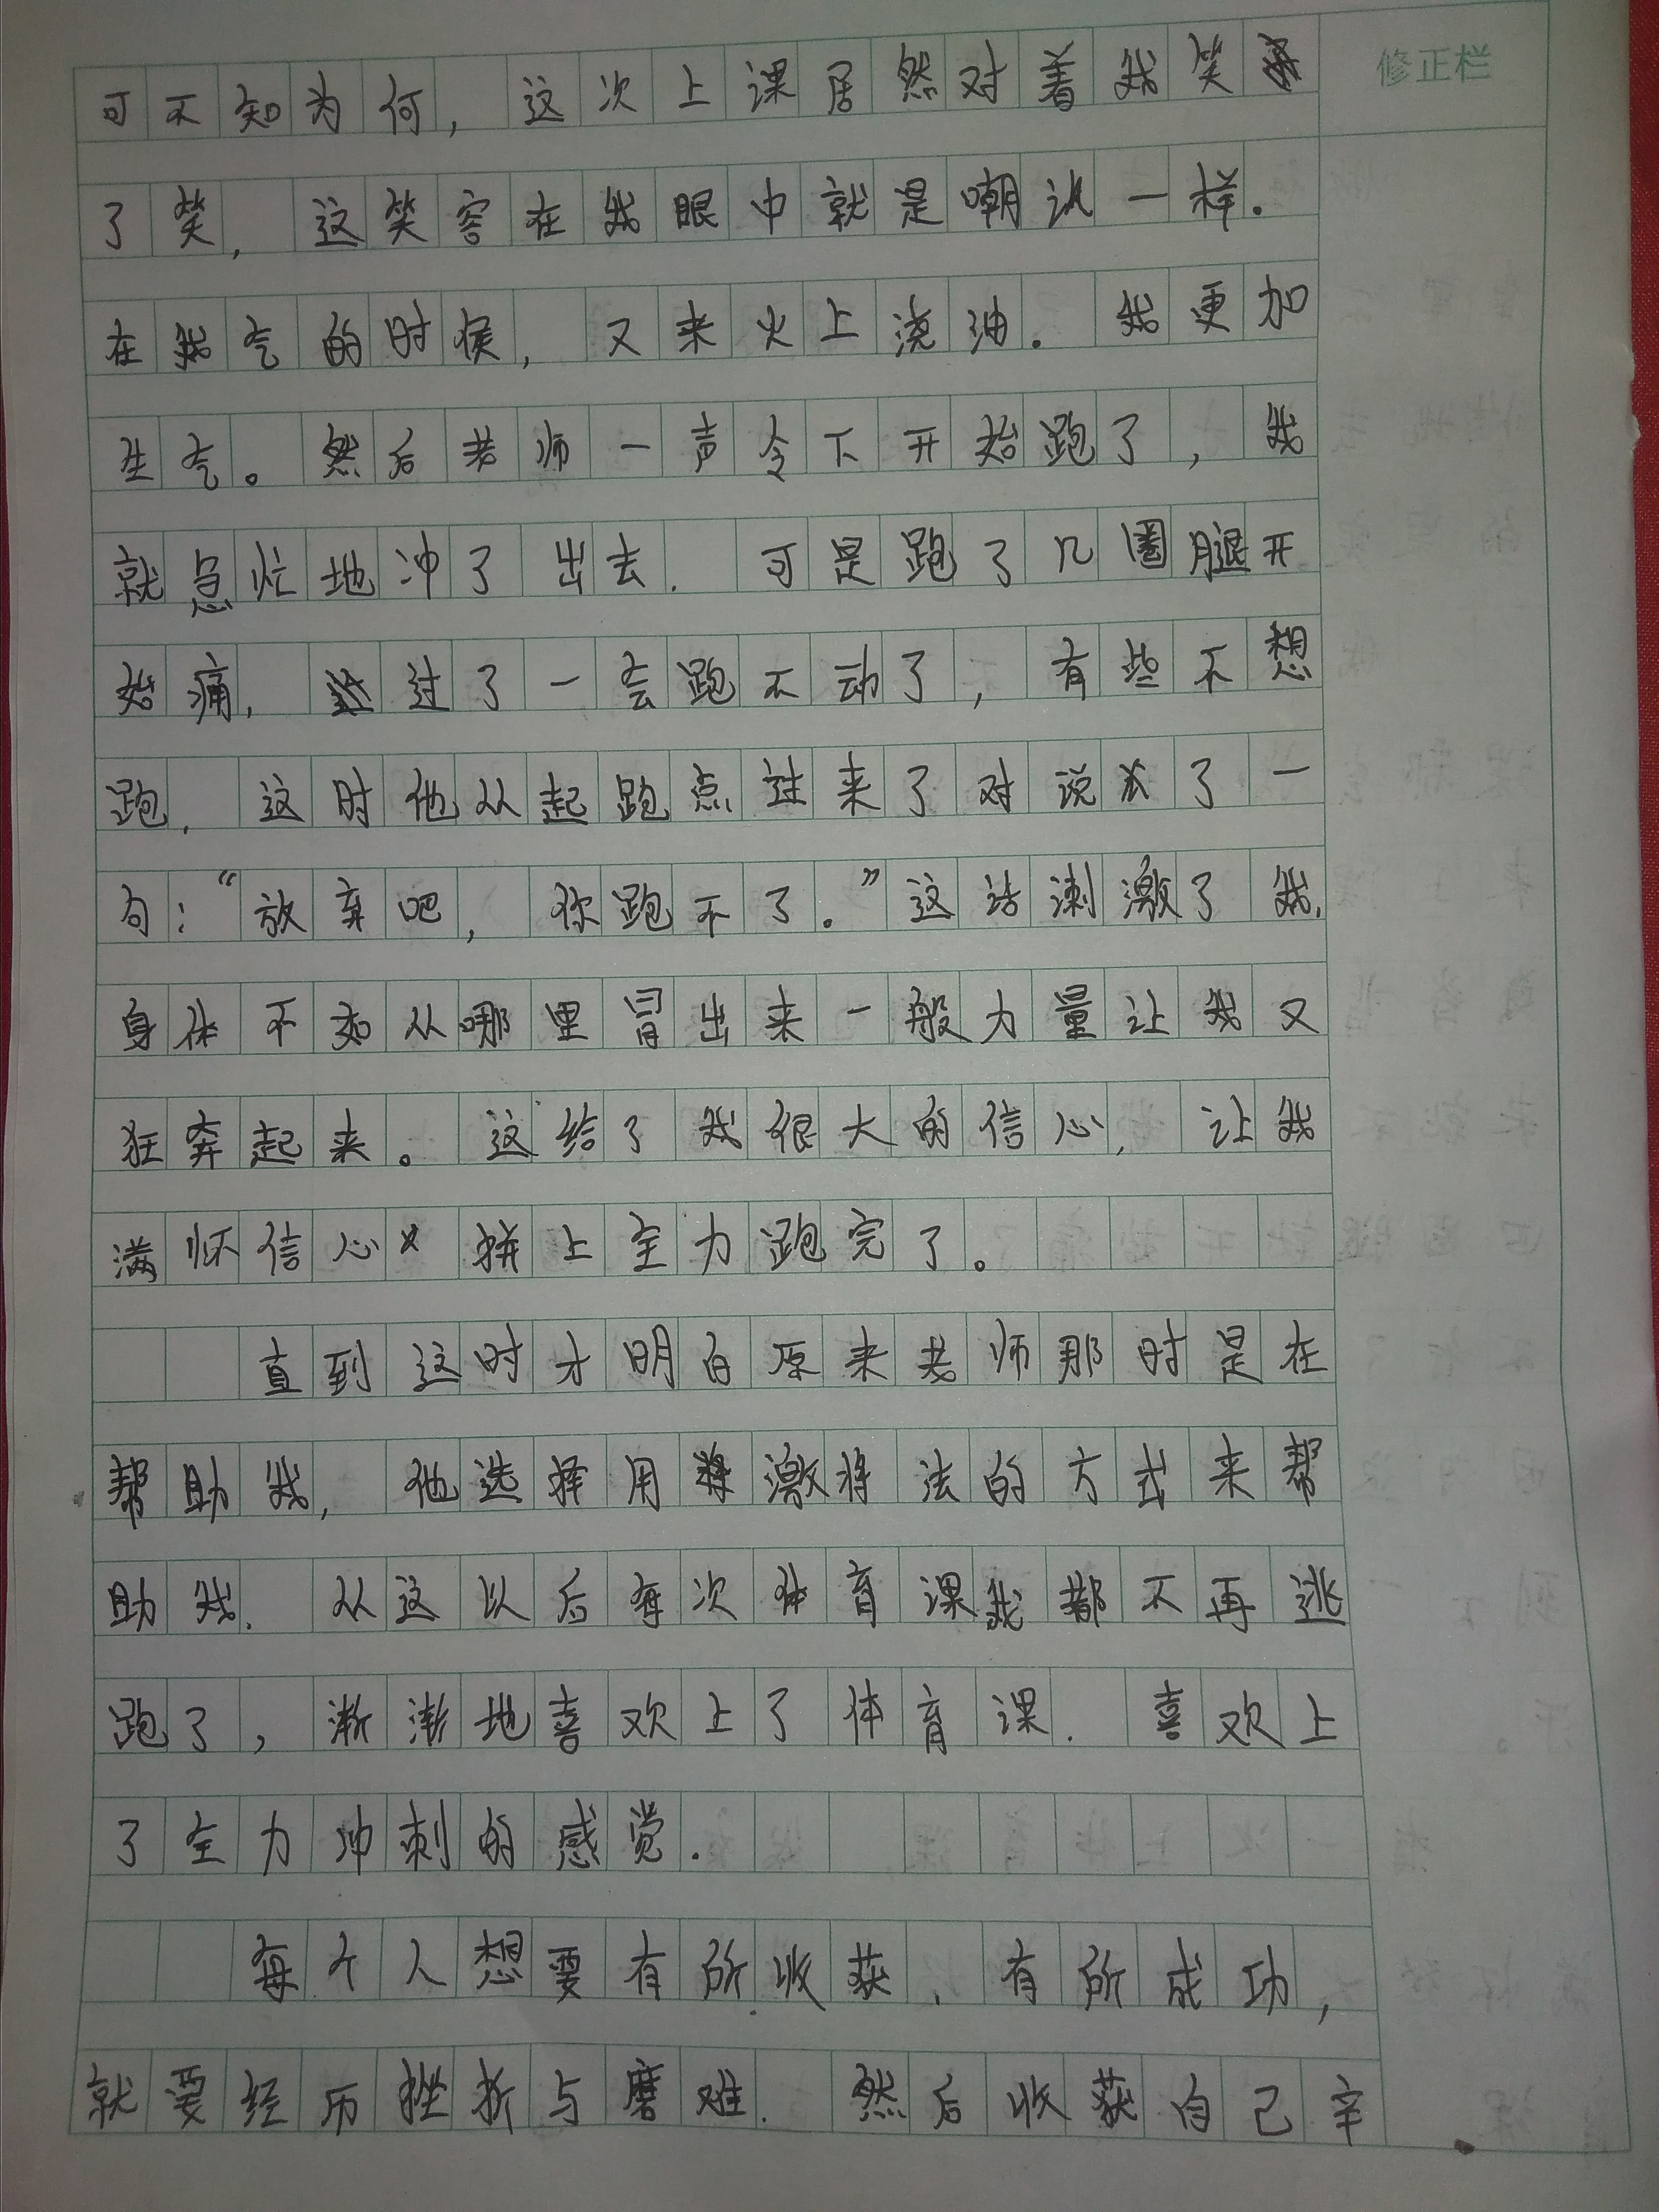 可不知为何，这次上课居然对着我笑
修正栏
了笑，这笑容在我眼中就是嘲讽一样.
在我气的时侯，又来火上浇油. 我更加
生气。然后老师一声令下开始跑了，我
就急忙地冲了出去. 可是跑了几圈腿开
始痛，过了一会跑不动了，有些不想
跑. 这时他从起跑点过来了对说了一
句：“放弃吧，你跑不了.”这话刺激了我,
身体不知从哪里冒出来一般力量让我又
狂奔起来。这给了我很大的信心，让我
满怀信心 拼上全力跑完了。
直到这时才明白原来老师那时是在
帮助我，他选择用激将法的方式来帮
助我. 从这以后每次体育课我都不再逃
跑了，渐渐地喜欢上了体育课. 喜欢上
了全力冲刺的感觉.
每个人想要有所收获、有所成功，
就要经历挫折与磨难. 然后收获自己辛